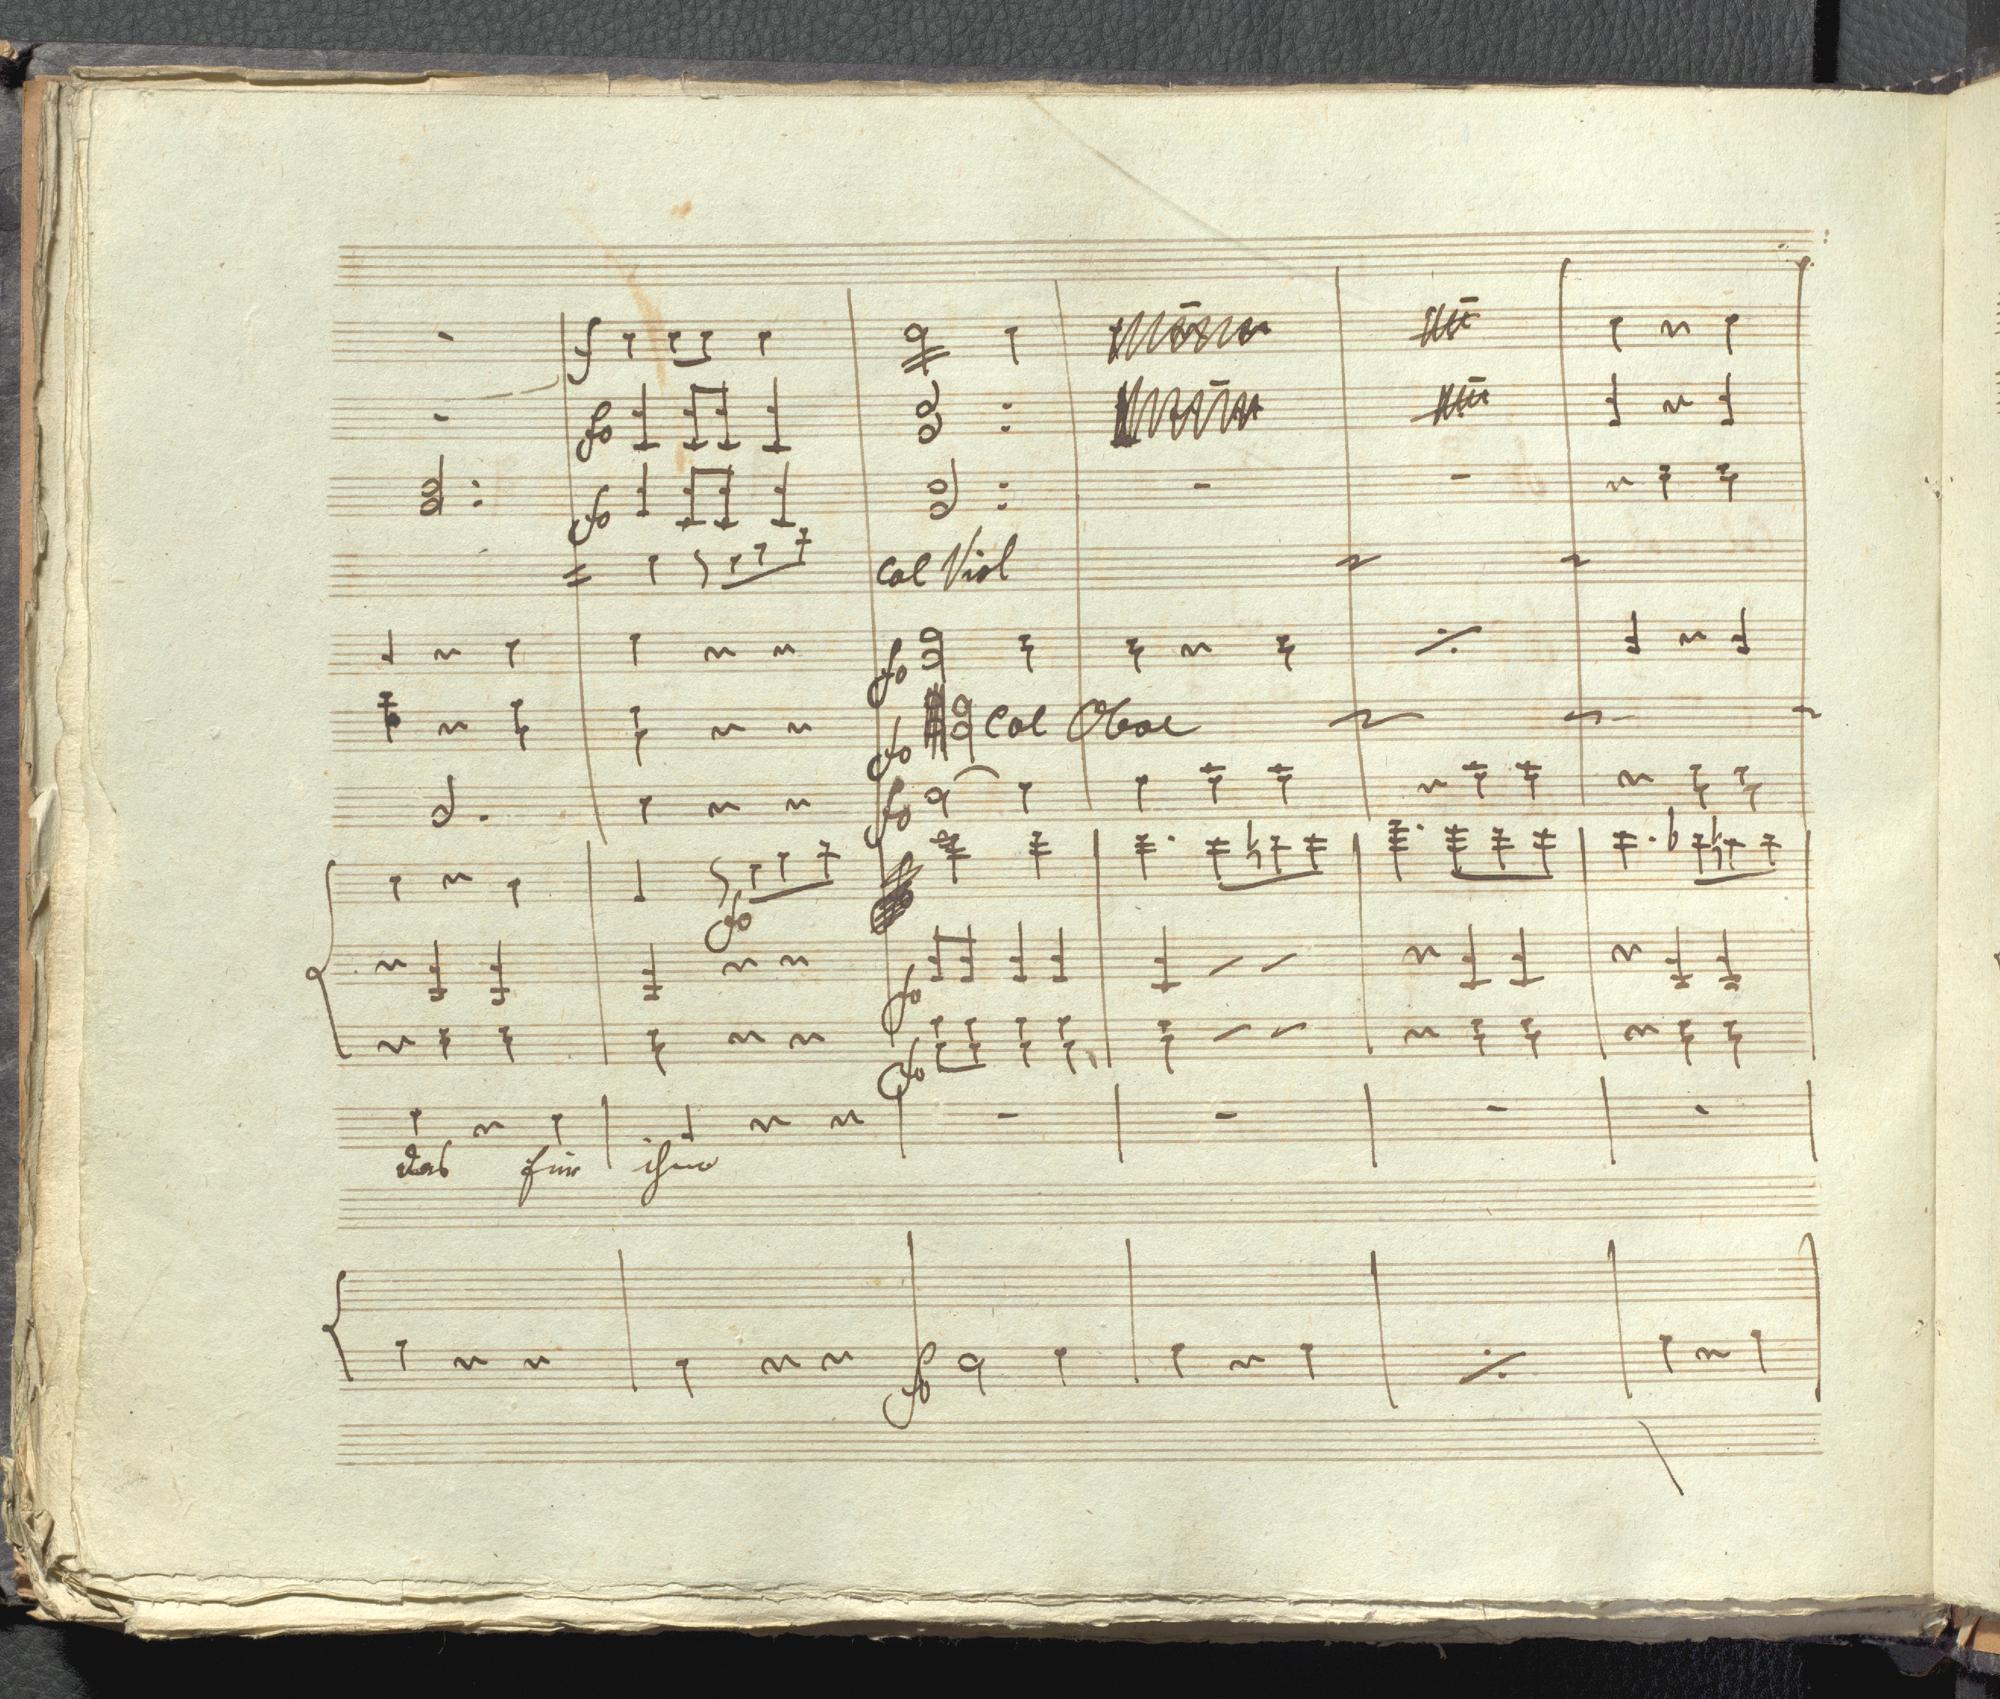 f
fo
fo
col Viol
fo
fo col Oboe
fo
fo
fo
fo
das für ihn
fo